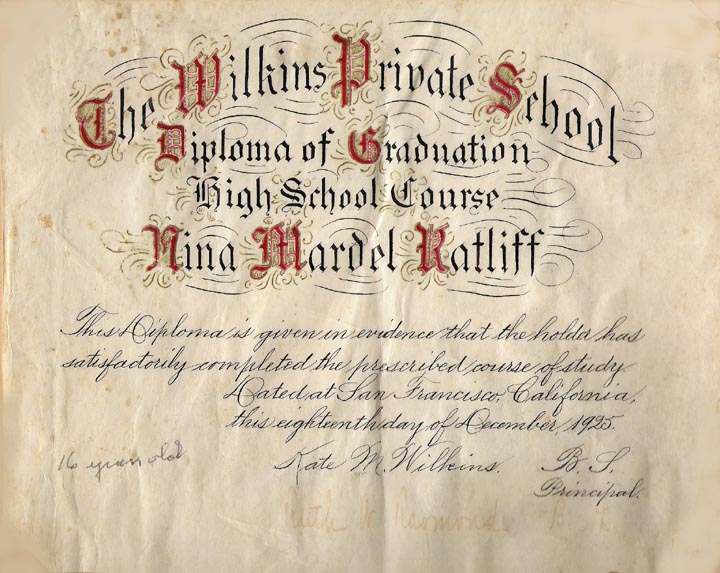 The Wilkins Private School
Diploma of Graduation
High School Course
Nina Mardel Ratliff
This Diploma is given in evidence that the holder has
satisfactorily completed the prescribed course of study.
Dated, at San Francisco, California,
this eighteenth day of December, 1925.
16 years old
Kate M. Wilkins. B. S.
Principal.
Ruth W Raymond B